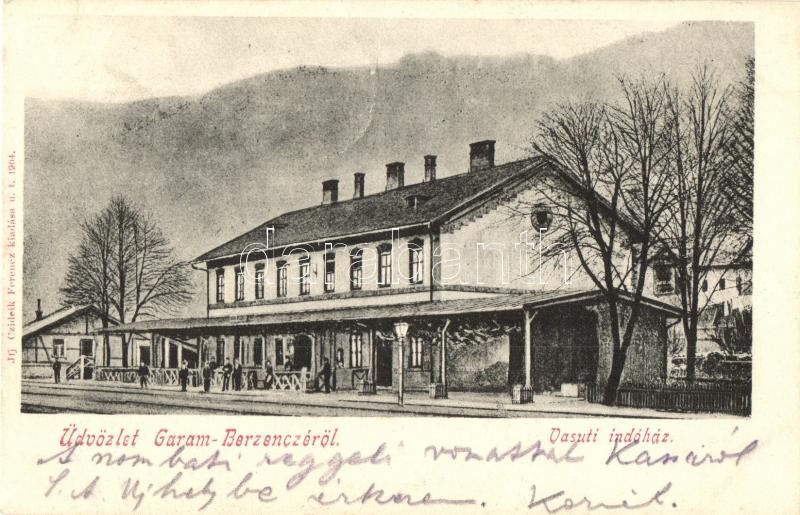 Ifj Czideik Ferencz kiadása u. t. 1904.
darabanth
Üdvözlet Garam-Berzenczéről.
Vasuti indóház.
A nombati reggeli vonattal Kassáról
S. A Ujhelybe érkezem. Kornél.